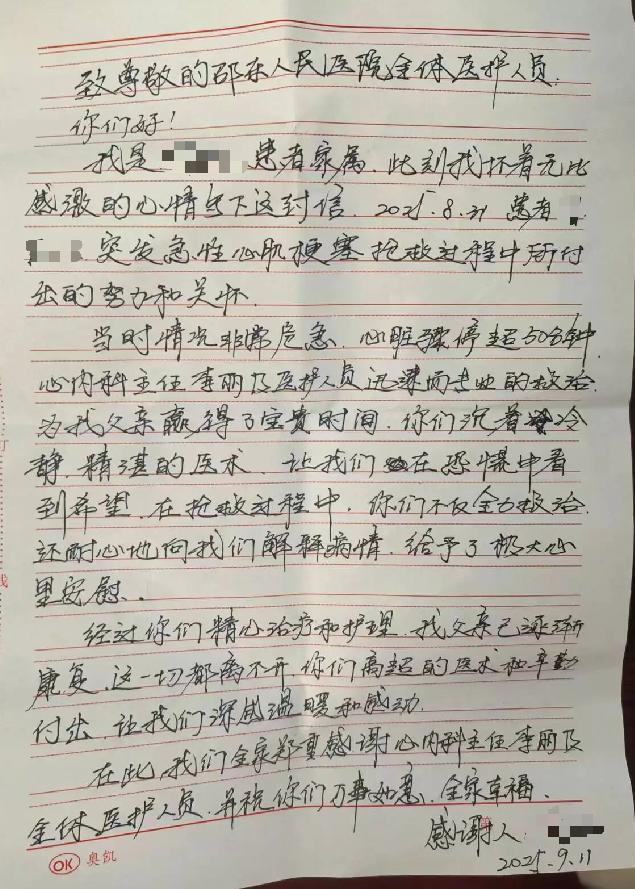 致尊敬的邵东人民医院全体医护人员.
你们好!
我是 患者家属. 此刻我怀着无比
感激的心情写下这封信. 2025.8.31 患者
突发急性心肌梗塞抢救过程中所付
出的努力和关怀.
当时情况非常危急. 心脏骤停超50分钟.
心内科主任李丽及医护人员迅速而专业的救治.
为我父亲赢得了宝贵时间. 你们沉着冷
静. 精湛的医术. 让我们在恐惧中看
到希望. 在抢救过程中. 你们不仅全力救治.
还耐心地向我们解释病情. 给予了极大心
里安慰.
经过你们精心治疗和护理. 我父亲已逐渐
康复. 这一切都离不开你们高超的医术和辛勤
付出. 让我们深感温暖和感动.
在此, 我们全家郑重感谢心内科主任李丽及
全体医护人员. 并祝你们万事如意. 全家幸福.
感谢人:
2025.9.11
OK 奥凯